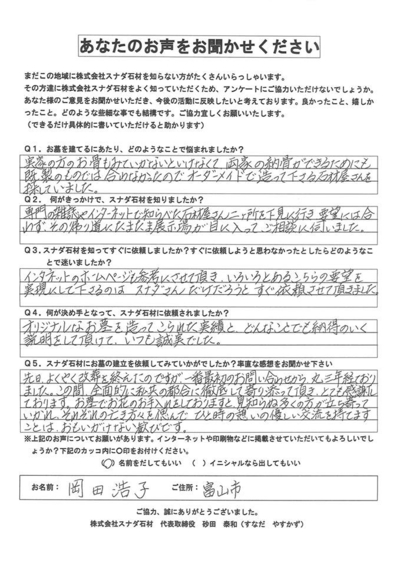 あなたのお声をお聞かせください
まだこの地域に株式会社スナダ石材を知らない方がたくさんいらっしゃいます。
その方達に株式会社スナダ石材をよく知っていただくため、アンケートにご協力いただけないでしょうか。
あなた様のご意見をお聞かせいただき、今後の活動に反映したいと考えております。良かったこと、嬉しか
ったこと。どのような些細な事でも結構です。ご協力宜しくお願いいたします。
(できるだけ具体的に書いていただけると助かります)
Q1. お墓を建てるにあたり、どのようなことで悩まれましたか?
実家の方のお骨もみていかないといけなくて 両家の納骨ができるためにも
既製のものでは合わなかったのでオーダーメイドで造って下さる石材屋さんを
探していました。
Q2. 何がきっかけで、スナダ石材を知りましたか?
専門の雑誌やインターネットで知らべた石材屋さん二ヶ所を下見に行き要望には合
わず その帰り道にたまたま展示場が目に入って ご相談に伺いました。
Q3.スナダ石材を知ってすぐに依頼しましたか?すぐに依頼しようと思わなかったとしたらどのようなこ
とで迷いましたか?
インターネットのホームページも参考にさせて頂き、いろいろとあるこちらの要望を
実現にして下さるのは スナダさんだけだろうと すぐ依頼させて頂きました。
Q4. 何が決め手となって、スナダ石材に依頼されましたか?
オリジナルなお墓を造ってこられた実績と どんなことでも納得のいく
説明をして頂けて、いつも誠実でした。
Q5.スナダ石材にお墓の建立を依頼してみていかがでしたか?率直な感想をお聞かせ下さい
先日、ようやく改葬を終えたのですが一番最初のお問い合わせから丸三年経ってお
りました。この間、全面的に私共の都合に徹底して寄り添って頂き、とても感謝し
ております。お墓でお花の手入れをしておりますと見知らぬ多くの方が立ち寄って
いかれ、それぞれの亡き方々を偲んで ひと時の憩いの優しい交流を持てます
ことは、おもいがけない歓びです。
※上記のお声についてお願いがあります。インターネットや印刷物などに掲載させていただいてもよろしいでし
ょうか?下記のカッコ内に〇印をお付けください。
(〇)名前をだしてもいい ( )イニシャルなら出してもいい
お名前: 岡田浩子 ご住所: 富山市
ご協力、誠にありがとうございます。
株式会社スナダ石材 代表取締役 砂田 泰和(すなだ やすかず)